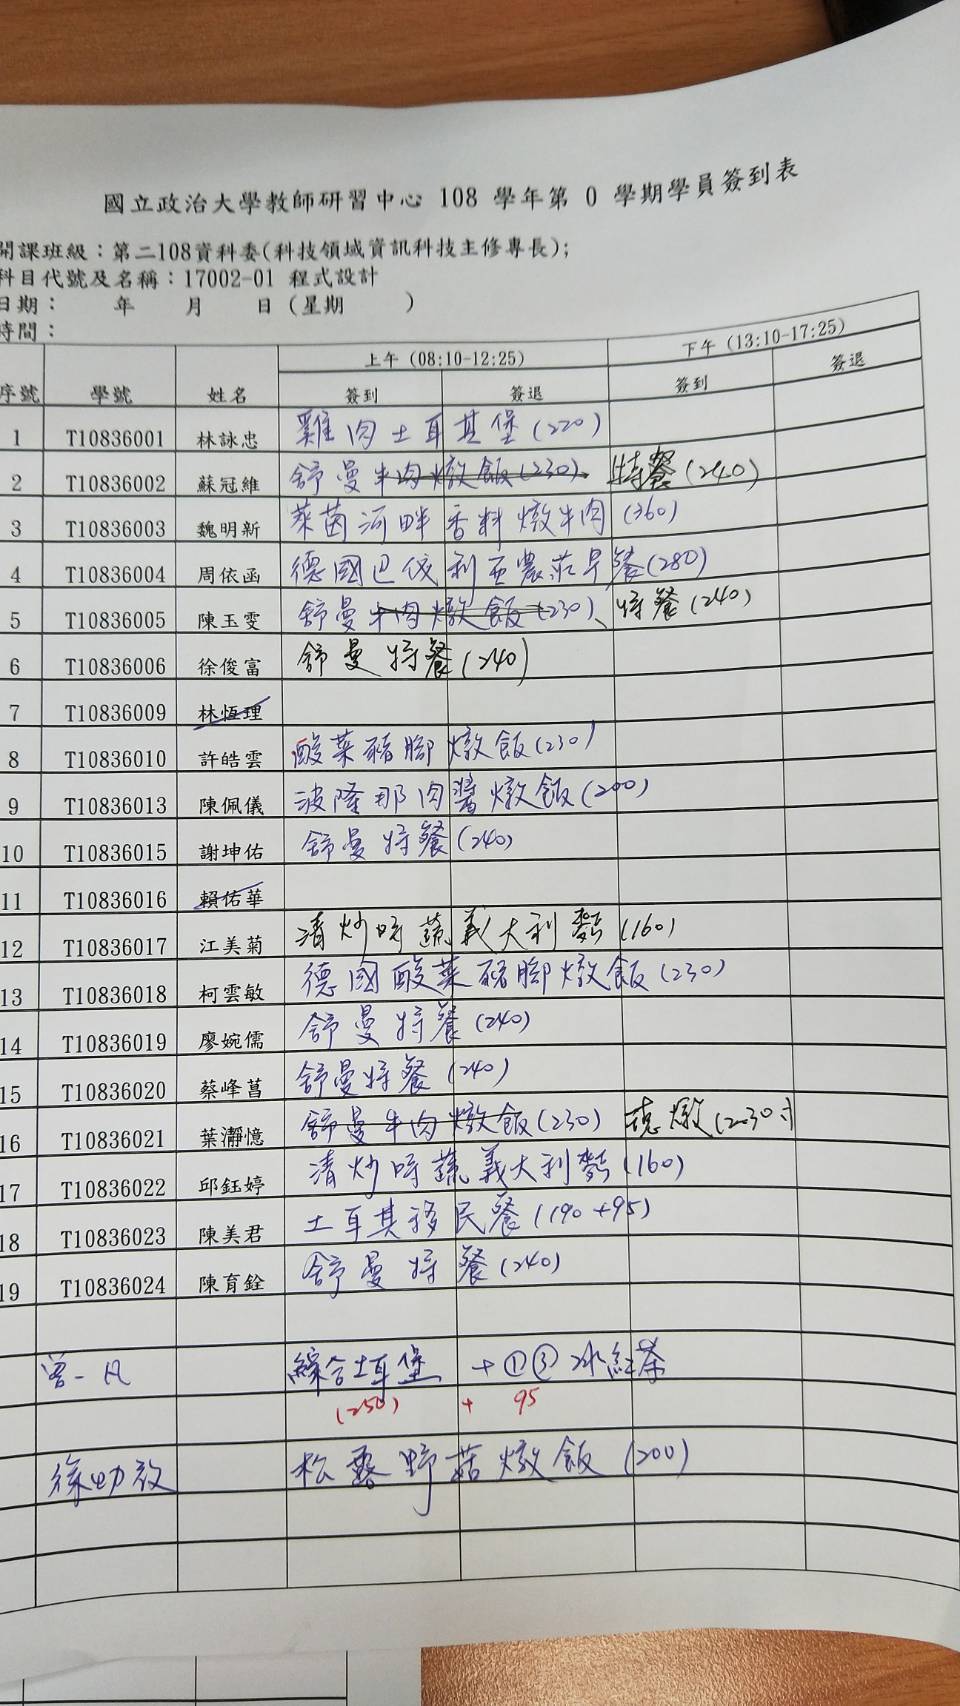 國立政治大學教師研習中心 108 學年第 0 學期學員簽到表
開課班級：第二108資科委(科技領域資訊科技主修專長);
科目代號及名稱：17002-01 程式設計
日期： 年 月 日 (星期 )
時間：
上午 (08:10-12:25) 下午 (13:10-17:25)
序號 學號 姓名 簽到 簽退 簽到 簽退
1 T10836001 林詠忠 雞肉土耳其堡(220)
2 T10836002 蘇冠維 舒曼牛肉燉飯(230) 特餐(240)
3 T10836003 魏明新 萊茵河畔香料燉牛肉(360)
4 T10836004 周依函 德國巴伐利亞農莊早餐(280)
5 T10836005 陳玉雯 舒曼牛肉燉飯(230)、特餐(240)
6 T10836006 徐俊富 舒曼特餐(240)
7 T10836009 林恆理
8 T10836010 許皓雲 酸菜豬腳燉飯(230)
9 T10836013 陳佩儀 波隆那肉醬燉飯(200)
10 T10836015 謝坤佑 舒曼特餐(240)
11 T10836016 賴佑華
12 T10836017 江美菊 清炒時蔬義大利麵(160)
13 T10836018 柯雲敏 德國酸菜豬腳燉飯(230)
14 T10836019 廖婉儒 舒曼特餐(240)
15 T10836020 蔡峰菖 舒曼特餐(240)
16 T10836021 葉瀞憶 舒曼牛肉燉飯(230) 燉(230)
17 T10836022 邱鈺婷 清炒時蔬義大利麵(160)
18 T10836023 陳美君 土耳其移民餐(190+95)
19 T10836024 陳育銓 舒曼特餐(240)
曾一凡 綜合土耳堡 + ①③ 冰紅茶
(250) + 95
徐幼 松露野菇燉飯(200)